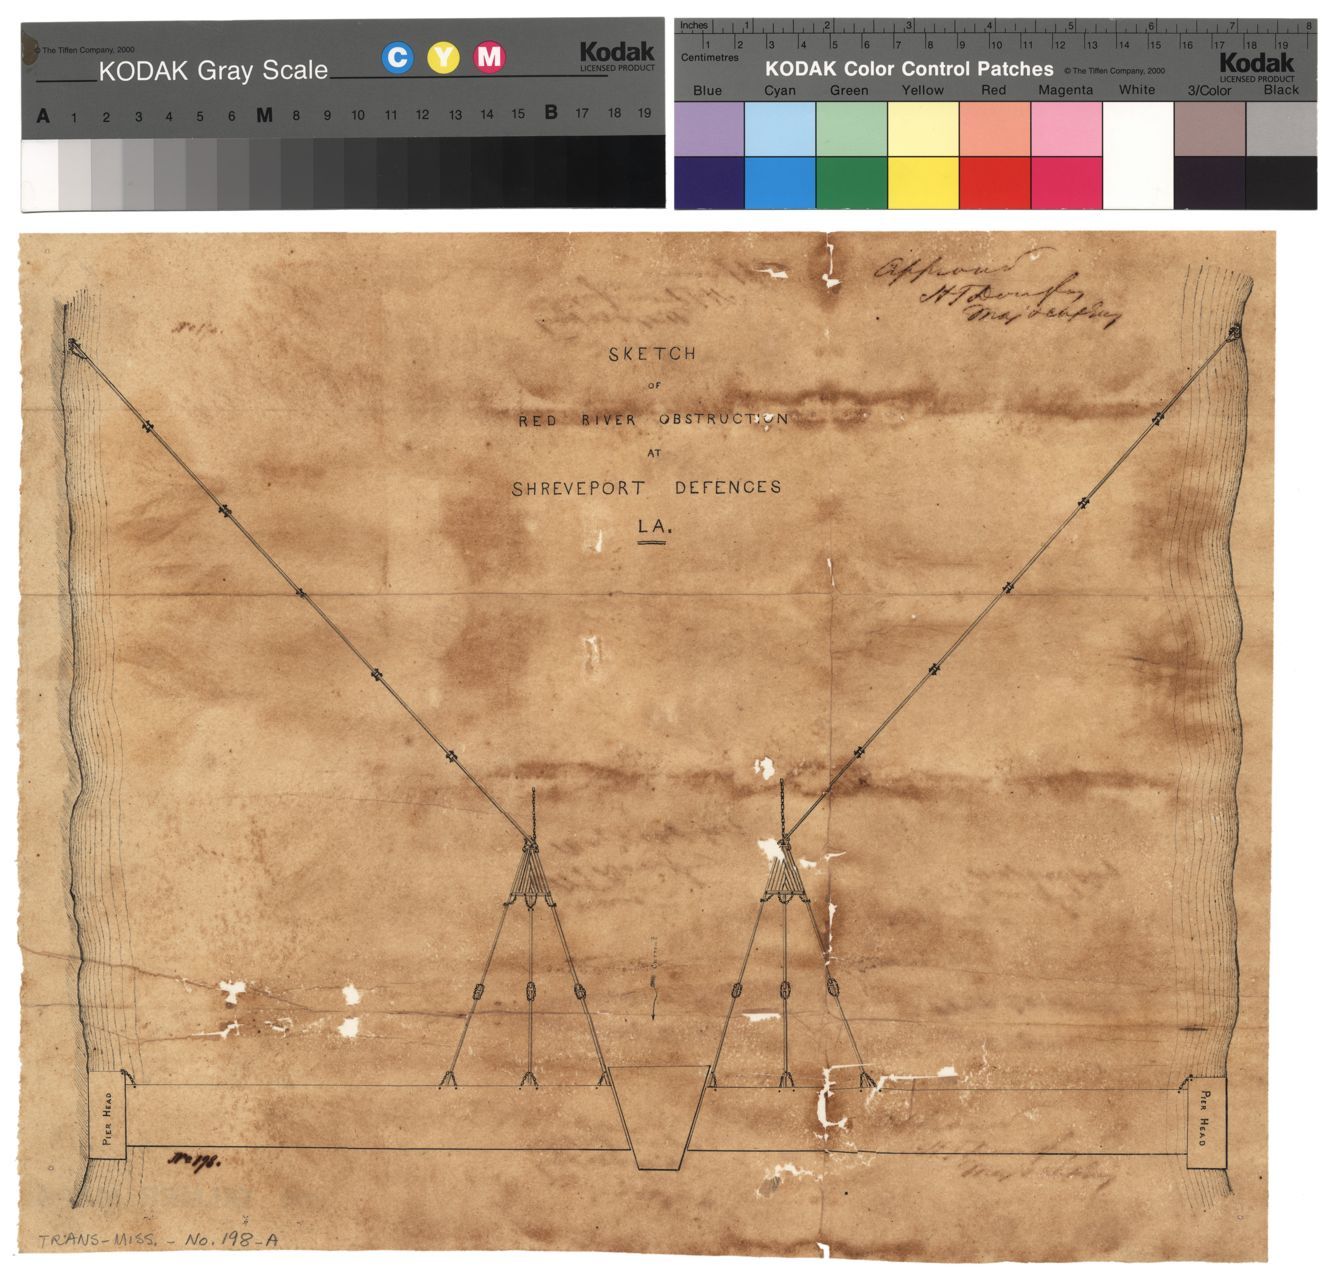 © The Tiffen Company, 2000
KODAK Gray Scale
C Y M
Kodak
LICENSED PRODUCT
A 1 2 3 4 5 6 M 8 9 10 11 12 13 14 15 B 17 18 19
Inches 1 2 3 4 5 6 7 8
1 2 3 4 5 6 7 8 9 10 11 12 13 14 15 16 17 18 19
Centimetres
KODAK Color Control Patches © The Tiffen Company, 2000
Kodak
LICENSED PRODUCT
Blue Cyan Green Yellow Red Magenta White 3/Color Black
Approved
SKETCH
OF
RED RIVER OBSTRUCTION
AT
SHREVEPORT DEFENCES
LA.
PIER HEAD
PIER HEAD
No 198.
TRANS-MISS. - No. 198-A